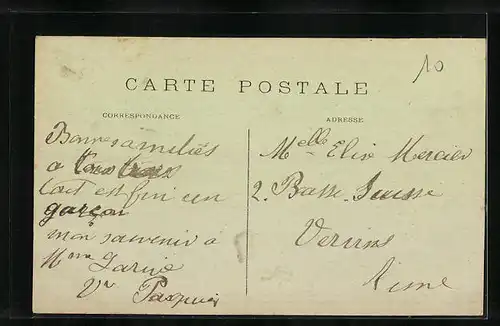 10
CARTE POSTALE
CORRESPONDANCE
Bonnes amitiés
a tous trois
tout est fini un
garçon
mon souvenir à
Mme
Vve Pasquier
ADRESSE
Melle Elise Mercier
2. Basse Suisse
Vervins
Aisne